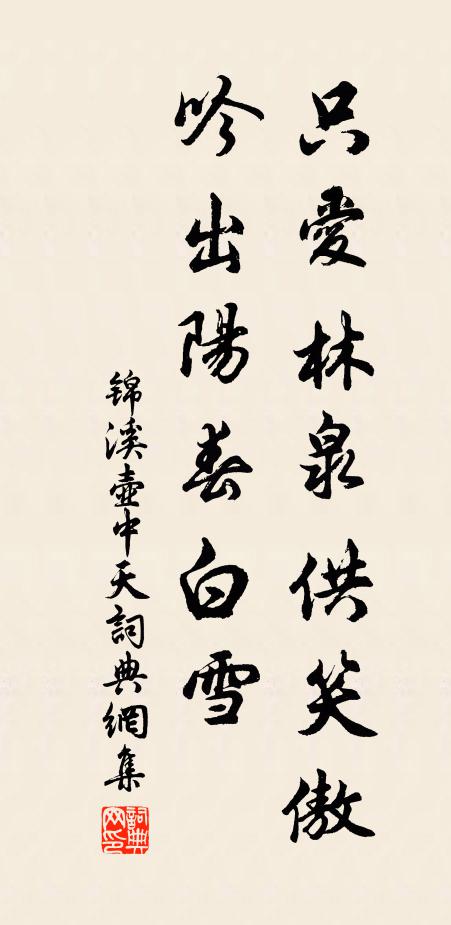 只愛林泉供笑傲
吟出陽春白雪
锦溪壺中天詞典網集
詞典
网印